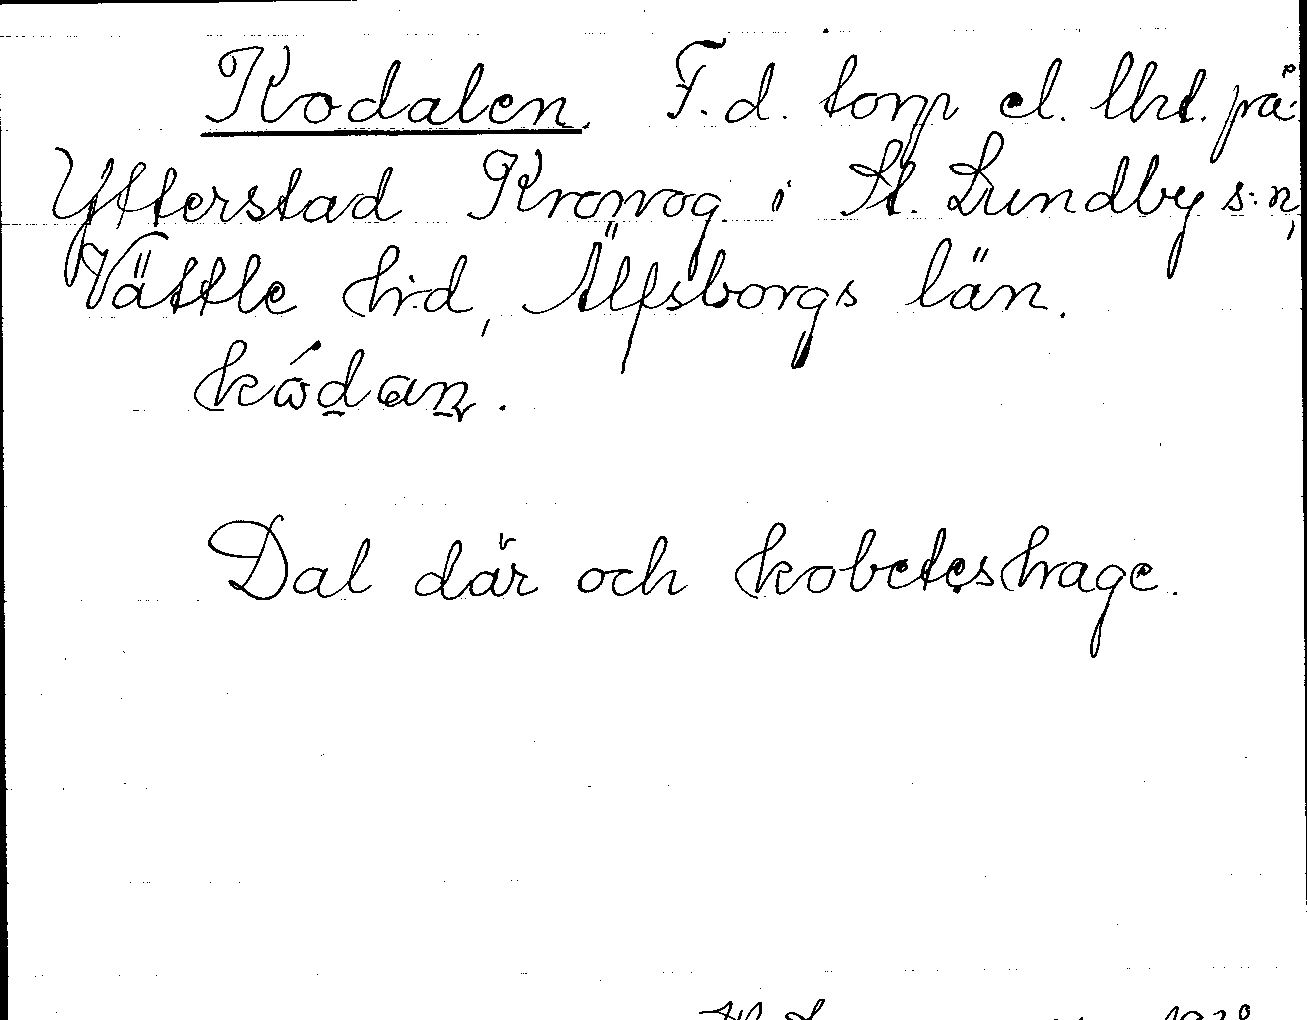 Kodalen. F.d. torp el. lht. på
Ytterstad Kronog. i St. Lundby s:n,
Vättle h:d, Älfsborgs län.
kódan.
Dal där och kobeteshage.